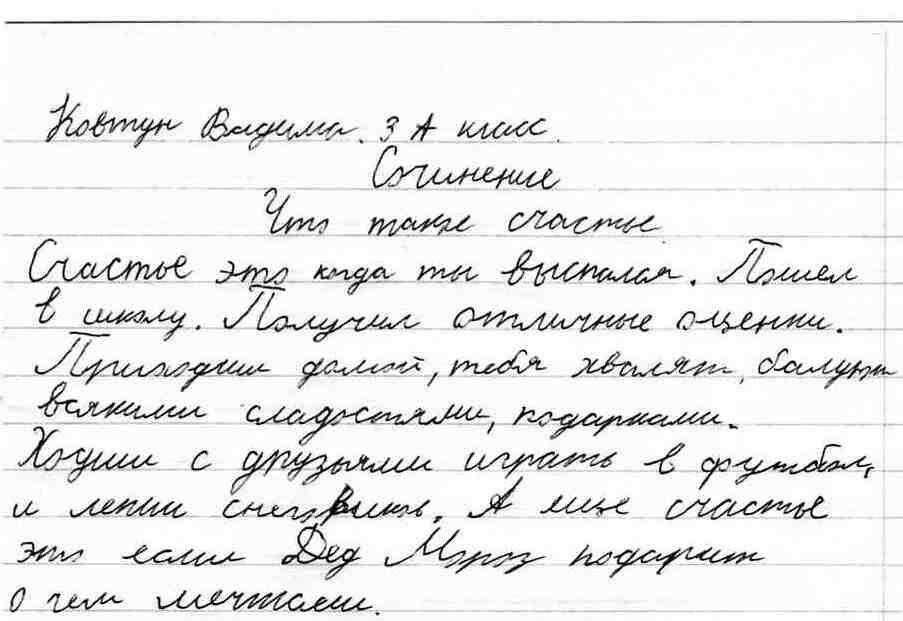 Ковтун Вадима. 3 А класс.
Сочинение
Что такое счастье
Счастье это когда ты выспался. Пошел
в школу. Получил отличные оценки.
Приходиш домой, тебя хвалят, балуют
всякими сладостями, подарками.
Ходиш с друзьями играть в футбол,
и лепиш снеговиков. А еще счастье
это если Дед Мороз подарит
о чем мечтаеш.